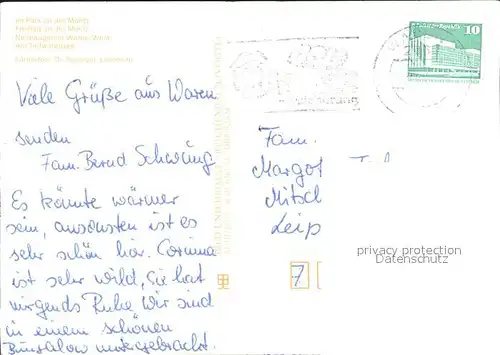 Im Park an der Müritz
Am Tiefwarensee
10
Viele Grüße aus Waren
senden
Fam. Bernd Schwung
Es könnte wärmer
sein, ansonsten ist es
sehr schön hier. Corinna
ist sehr wild, Sie hat
nirgends Ruhe wir sind
in einem schönen
Bungalow untergebracht.
Fam.
Margot
Mitsch
Leip
7
privacy protection
Datenschutz